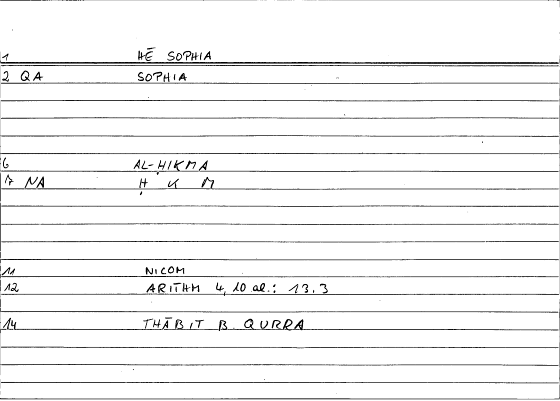 1 HĒ SOPHIA
2 QA SOPHIA
6 AL-ḤIKMA
7 NA Ḥ K M
11 NICOM
12 ARITHM 4, 10 al.: 13.3
14 THĀBIT B. QURRA